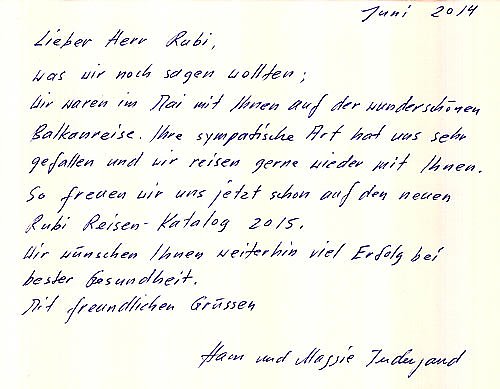 Juni 2014
Lieber Herr Rubi,
was wir noch sagen wollten;
Wir waren im Mai mit Ihnen auf der wunderschönen
Balkanreise. Ihre sympatische Art hat uns sehr
gefallen und wir reisen gerne wieder mit Ihnen.
So freuen wir uns jetzt schon auf den neuen
Rubi Reisen-Katalog 2015.
Wir wünschen Ihnen weiterhin viel Erfolg bei
bester Gesundheit.
Mit freundlichen Grüssen
und Maggie